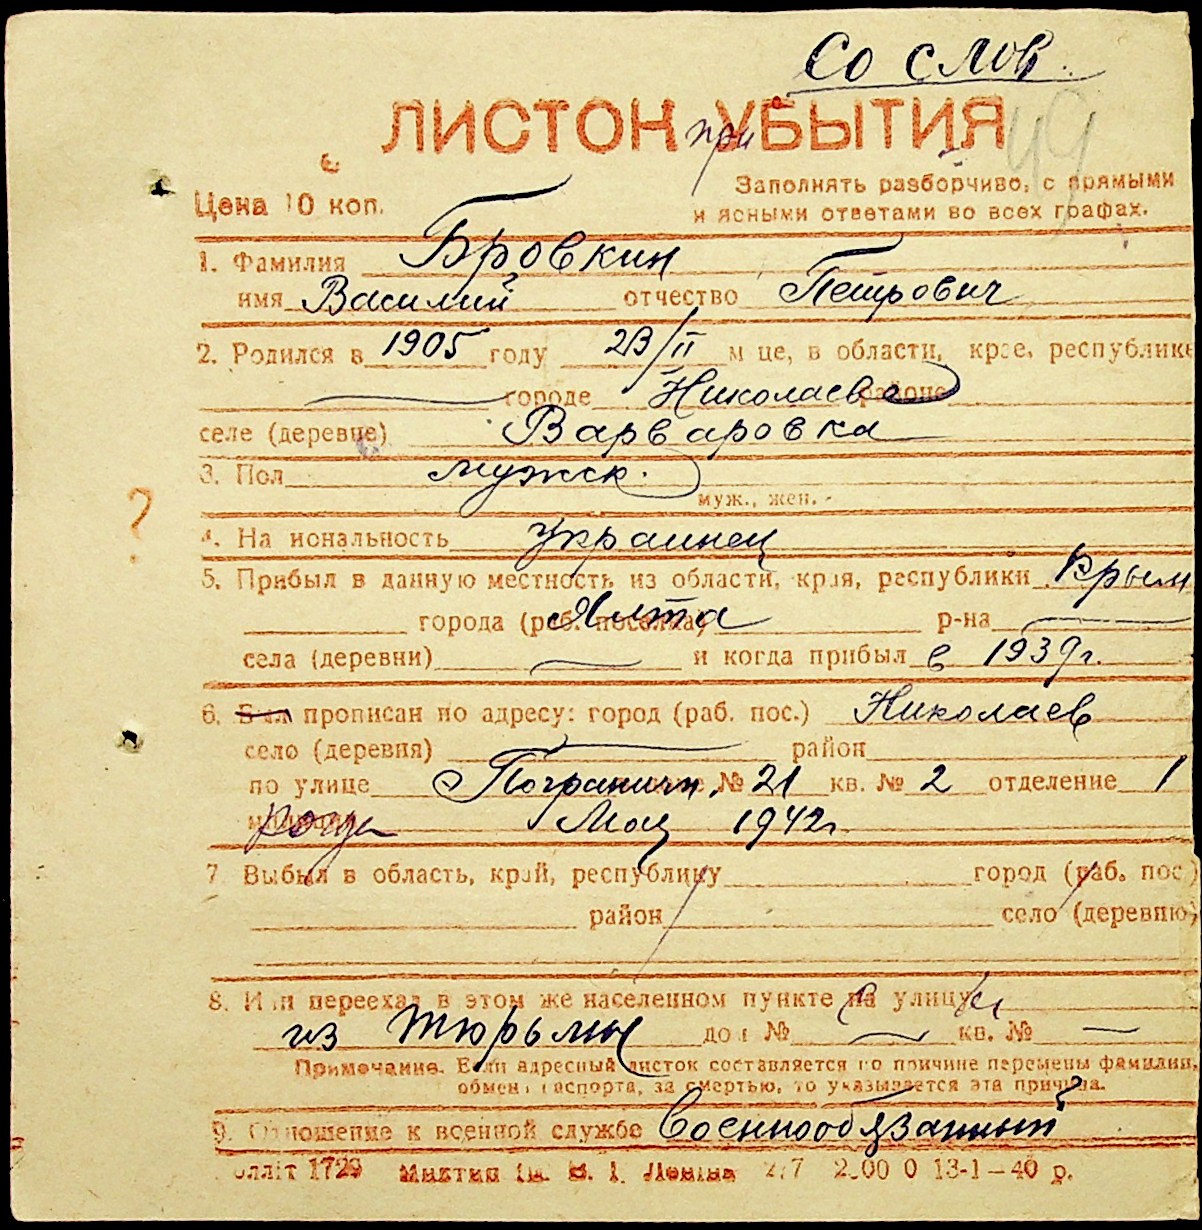 Со слов.
ЛИСТОК при УБЫТИЯ
49
Цена 10 коп.
Заполнять разборчиво, с прямыми
и ясными ответами во всех графах.
1. Фамилия Бровкин
имя Василий отчество Петрович
2. Родился в 1905 году 23/II м це, в области, крае, республике
городе Николаев районе
селе (деревне) Варваровка
3. Пол мужск.
муж., жен.
4. На иональность украинец
5. Прибыл в данную местность из области, края, республики Крым
города (раб. поселка) Ялта р-на
села (деревни) и когда прибыл в 1939 г.
6. Был прописан по адресу: город (раб. пос.) Николаев
село (деревня) район
по улице Пограничн. № 21 кв. № 2 отделение 1
Мац 1942 г.
7. Выбыл в область, край, республику город (раб. пос.)
район село (деревню)
8. Или переехал в этом же населенном пункте на улицу
из тюрьмы дом № кв. №
Примечание. Если адресный листок составляется по причине перемены фамилии,
обмена паспорта, за смертью, то указывается эта причина.
9. Отношение к военной службе Военнообязанный
?
1729 В. І. Леніна 2.00 0 13-1—40 р.